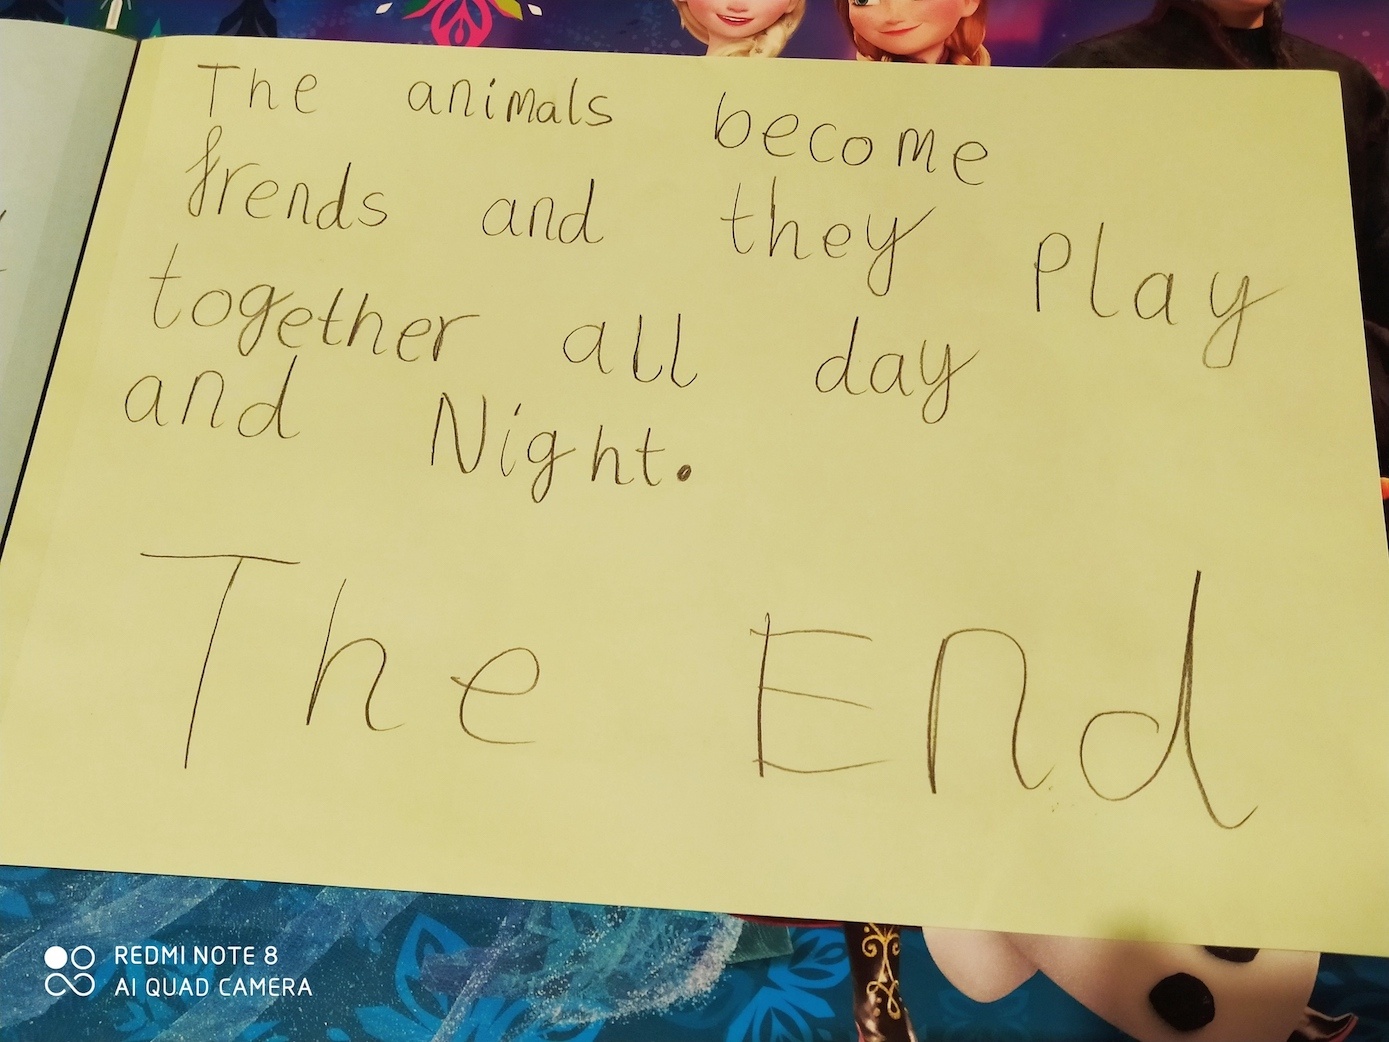 The animals become
frends and they Play
together all day
and Night.
The End
REDMI NOTE 8
AI QUAD CAMERA